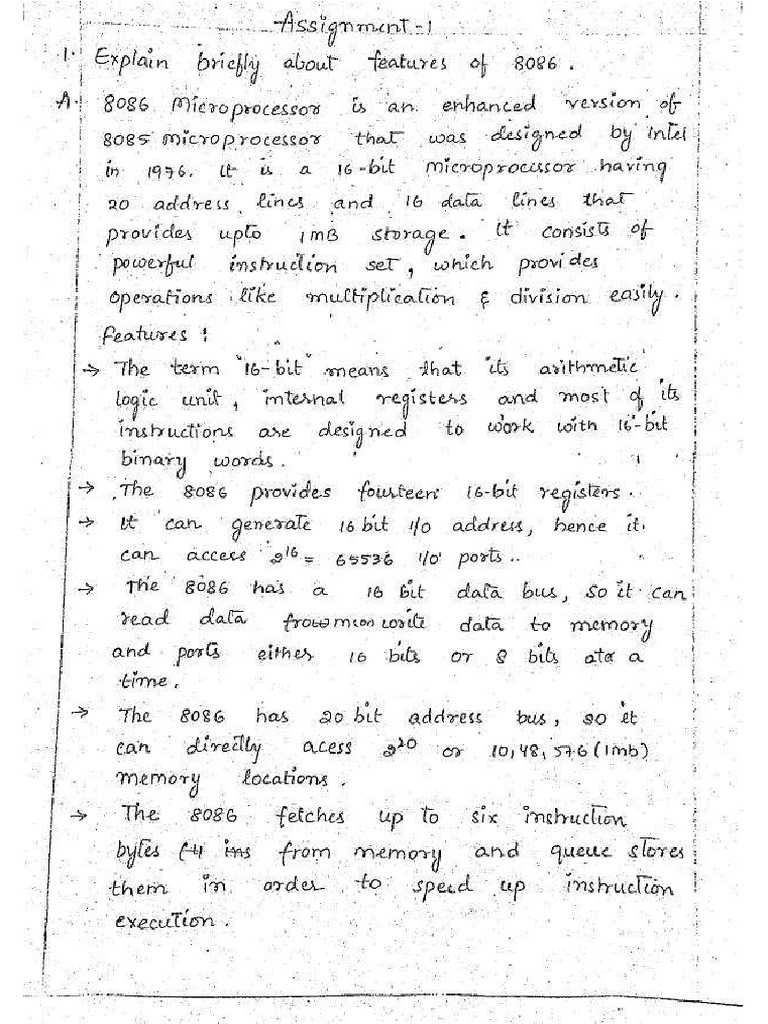 Assignment-1
1. Explain briefly about features of 8086.
A. 8086 Microprocessor is an enhanced version of
8085 microprocessor that was designed by Intel
in 1976. It is a 16-bit microprocessor having
20 address lines and 16 data lines that
provides upto 1MB storage. It consists of
powerful instruction set, which provides
operations like multiplication & division easily.
Features:
→ The term "16-bit" means that its arithmetic
logic unit, internal registers and most of its
instructions are designed to work with 16-bit
binary words.
→ The 8086 provides fourteen 16-bit registers.
→ It can generate 16 bit I/O address, hence it
can access 2^16 = 65536 I/O ports..
→ The 8086 has a 16 bit data bus, so it can
read data from write data to memory
and ports either 16 bits or 8 bits at a
time.
→ The 8086 has 20 bit address bus, so it
can directly acess 2^20 or 10,48,576 (1mb)
memory locations.
→ The 8086 fetches up to six instruction
bytes from memory and queue stores
them in order to speed up instruction
execution.